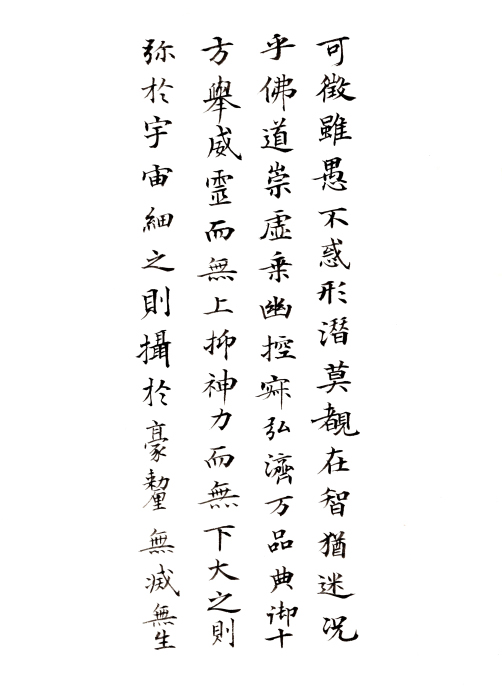 可徵雖愚不惑形潛莫覩在智猶迷況
乎佛道崇虛乗幽控寂弘濟万品典御十
方舉威靈而無上抑神力而無下大之則
弥於宇宙細之則攝於豪釐無滅無生